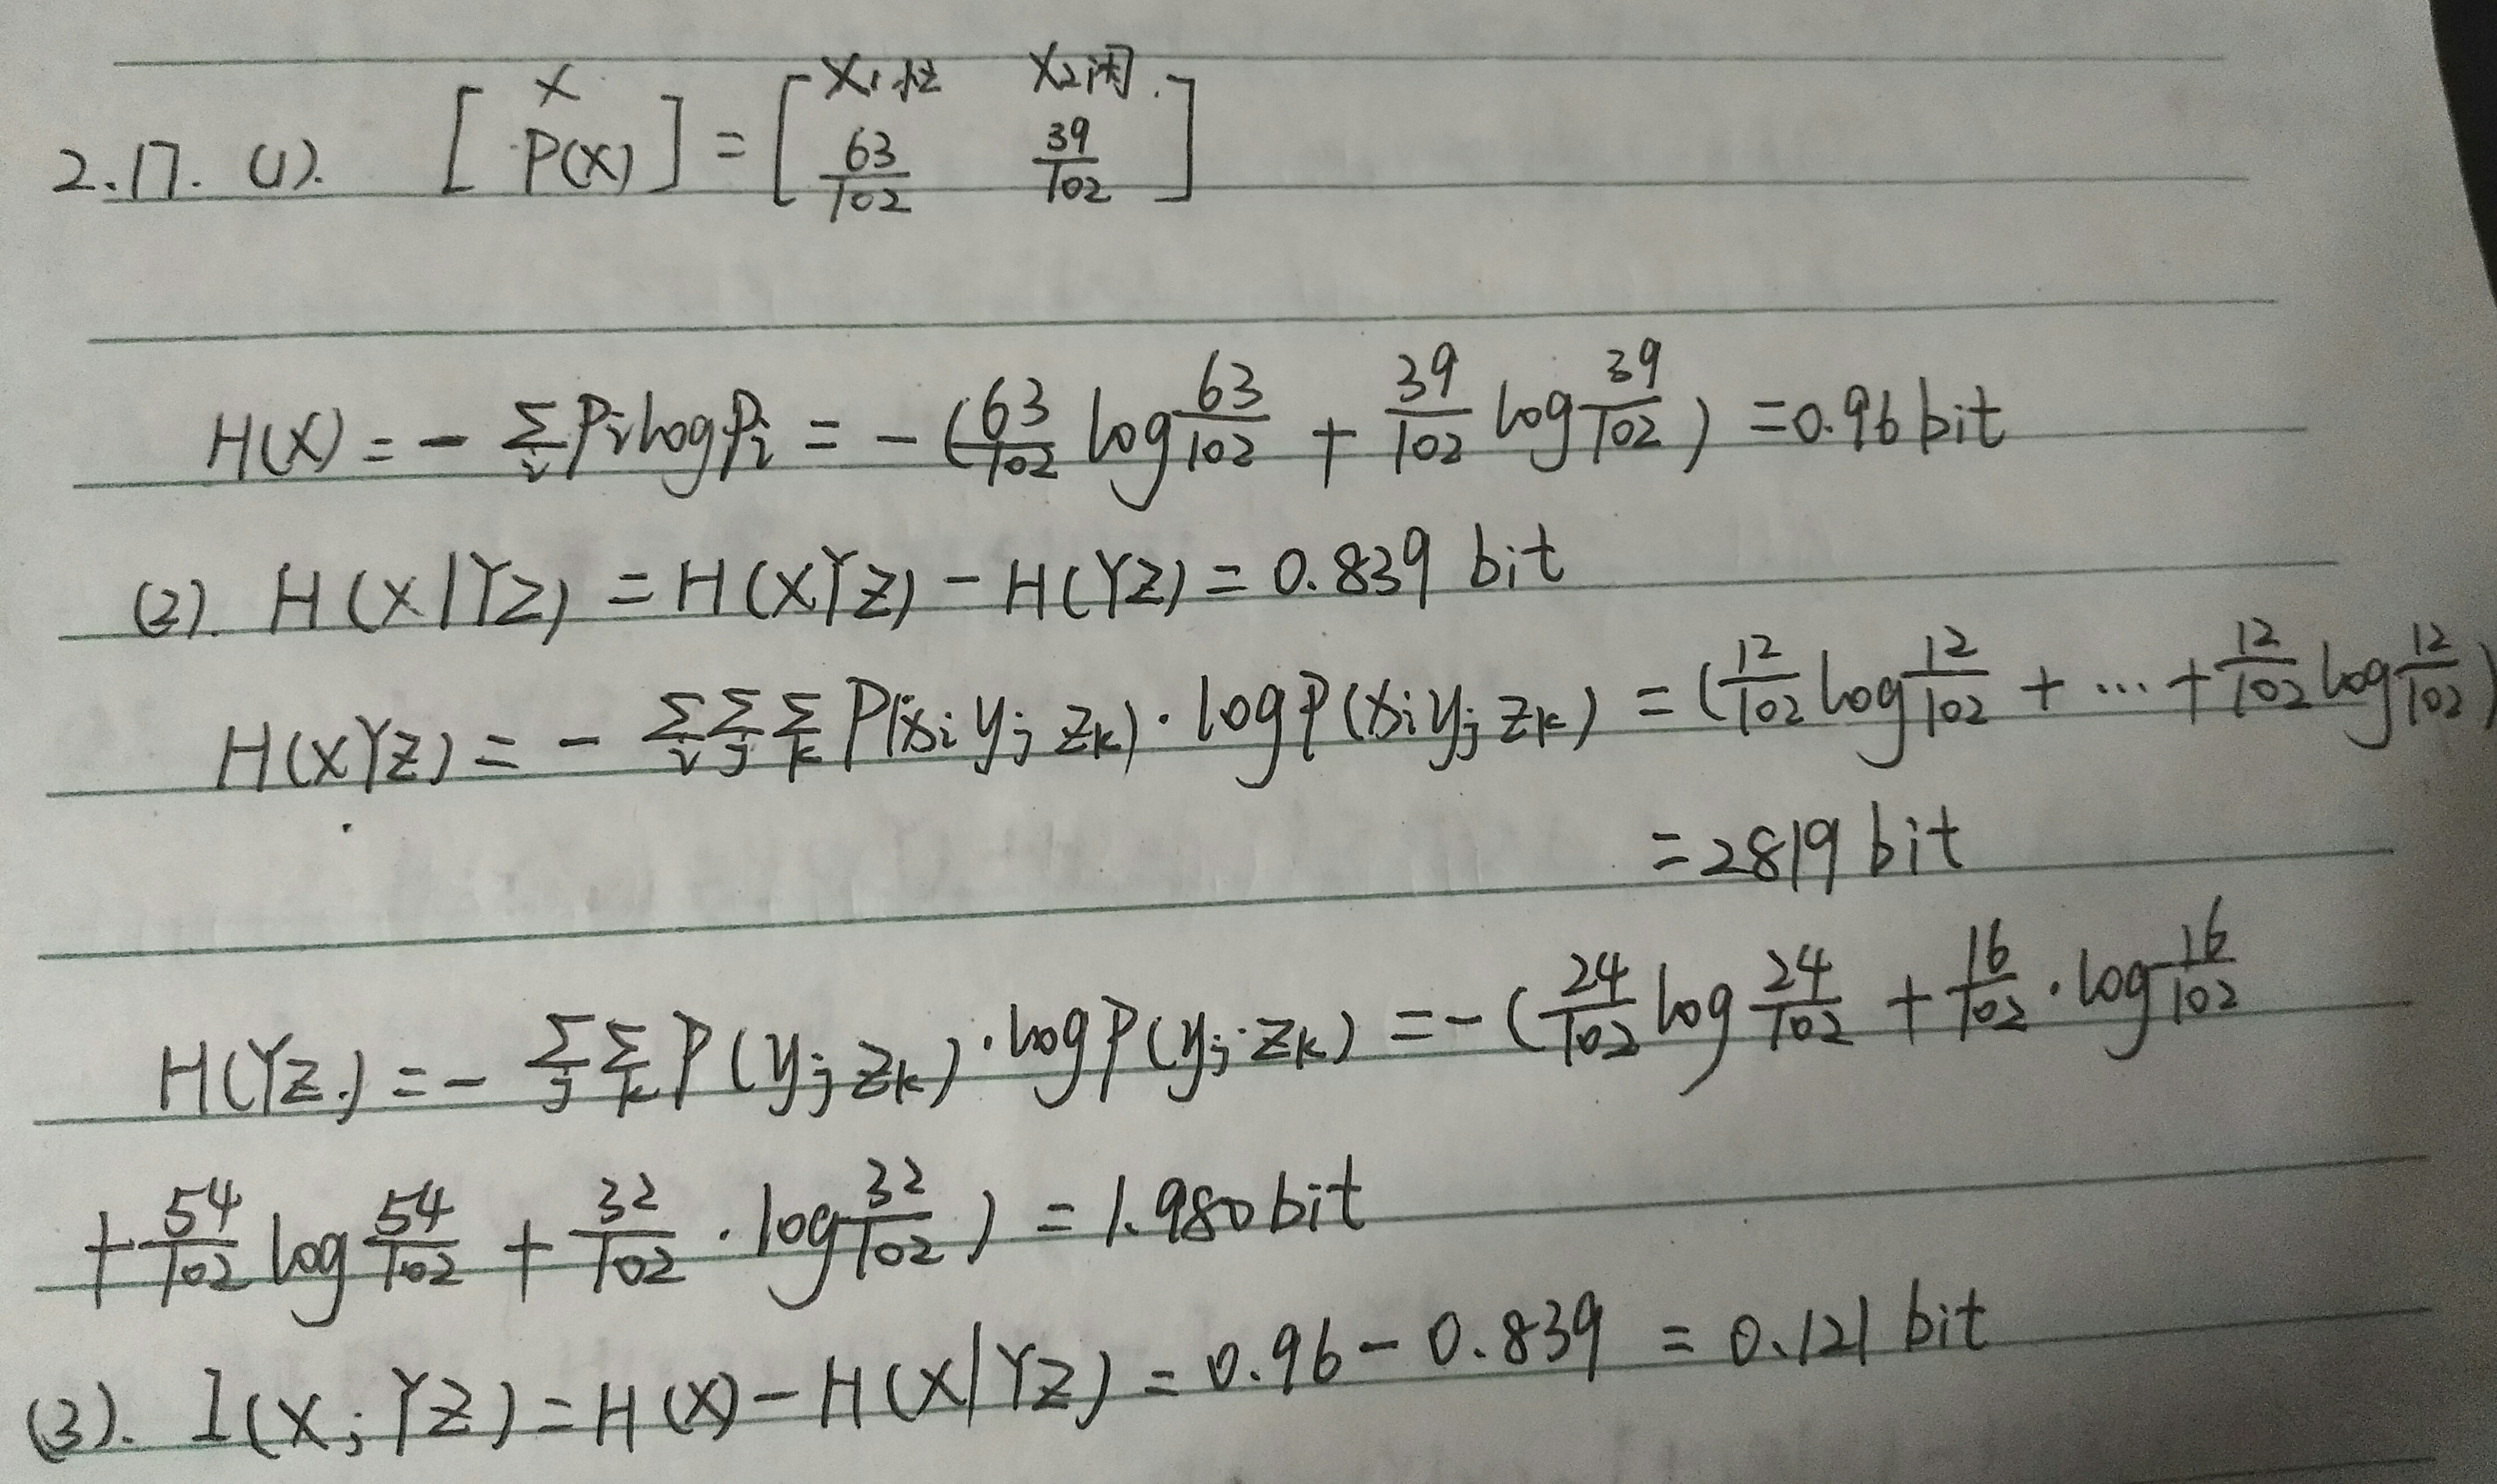 2.17. (1). [X P(X)] = [X₁忙 X₂闲. 63/102 39/102]
H(X) = - Σᵢ Pᵢ log Pᵢ = - (63/102 log 63/102 + 39/102 log 39/102) = 0.96 bit
(2). H(X|YZ) = H(XYZ) - H(YZ) = 0.839 bit
H(XYZ) = - Σᵢ Σⱼ Σₖ P(xᵢ yⱼ zₖ) · log P(xᵢ yⱼ zₖ) = (12/102 log 12/102 + ... + 12/102 log 12/102)
= 2819 bit
H(YZ.) = - Σⱼ Σₖ P(yⱼ zₖ) · log P(yⱼ zₖ) = - (24/102 log 24/102 + 16/102 · log 16/102
+ 54/102 log 54/102 + 32/102 · log 32/102) = 1.980 bit
(3). I(X; YZ) = H(X) - H(X|YZ) = 0.96 - 0.839 = 0.121 bit